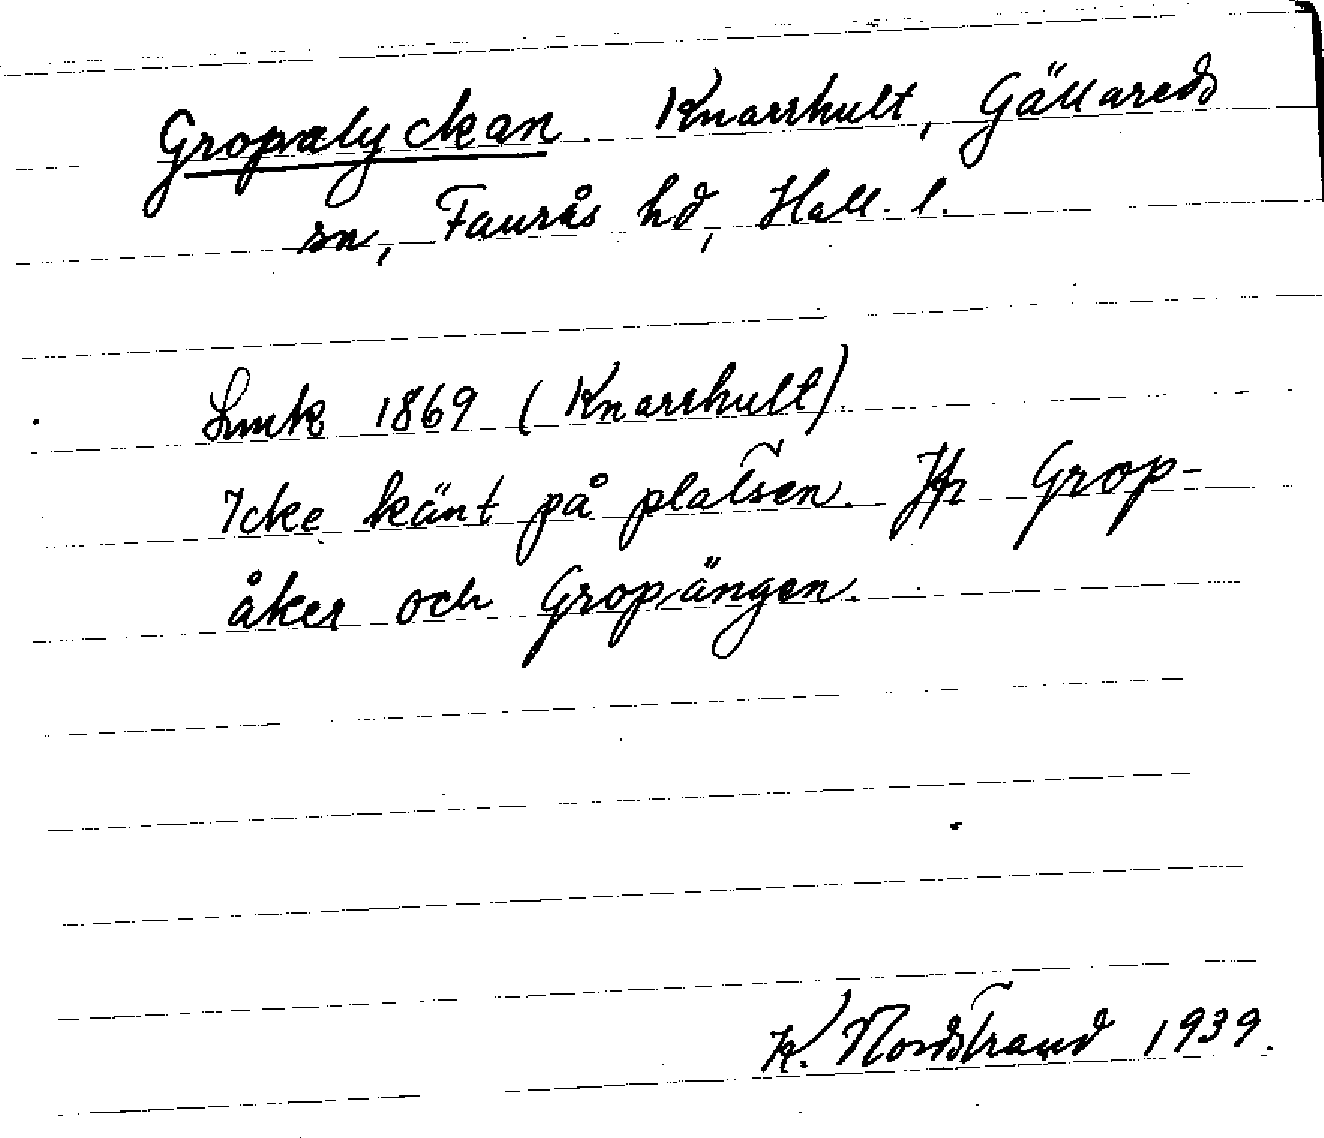 Gropalyckan Knarrhult, Gällareds
sn, Faurås hd, Hall. l.
Lmk 1869 (Knarrhult).
Icke känt på platsen. Jfr Grop-
åker och Gropängen.
K. Nordstrand 1939.